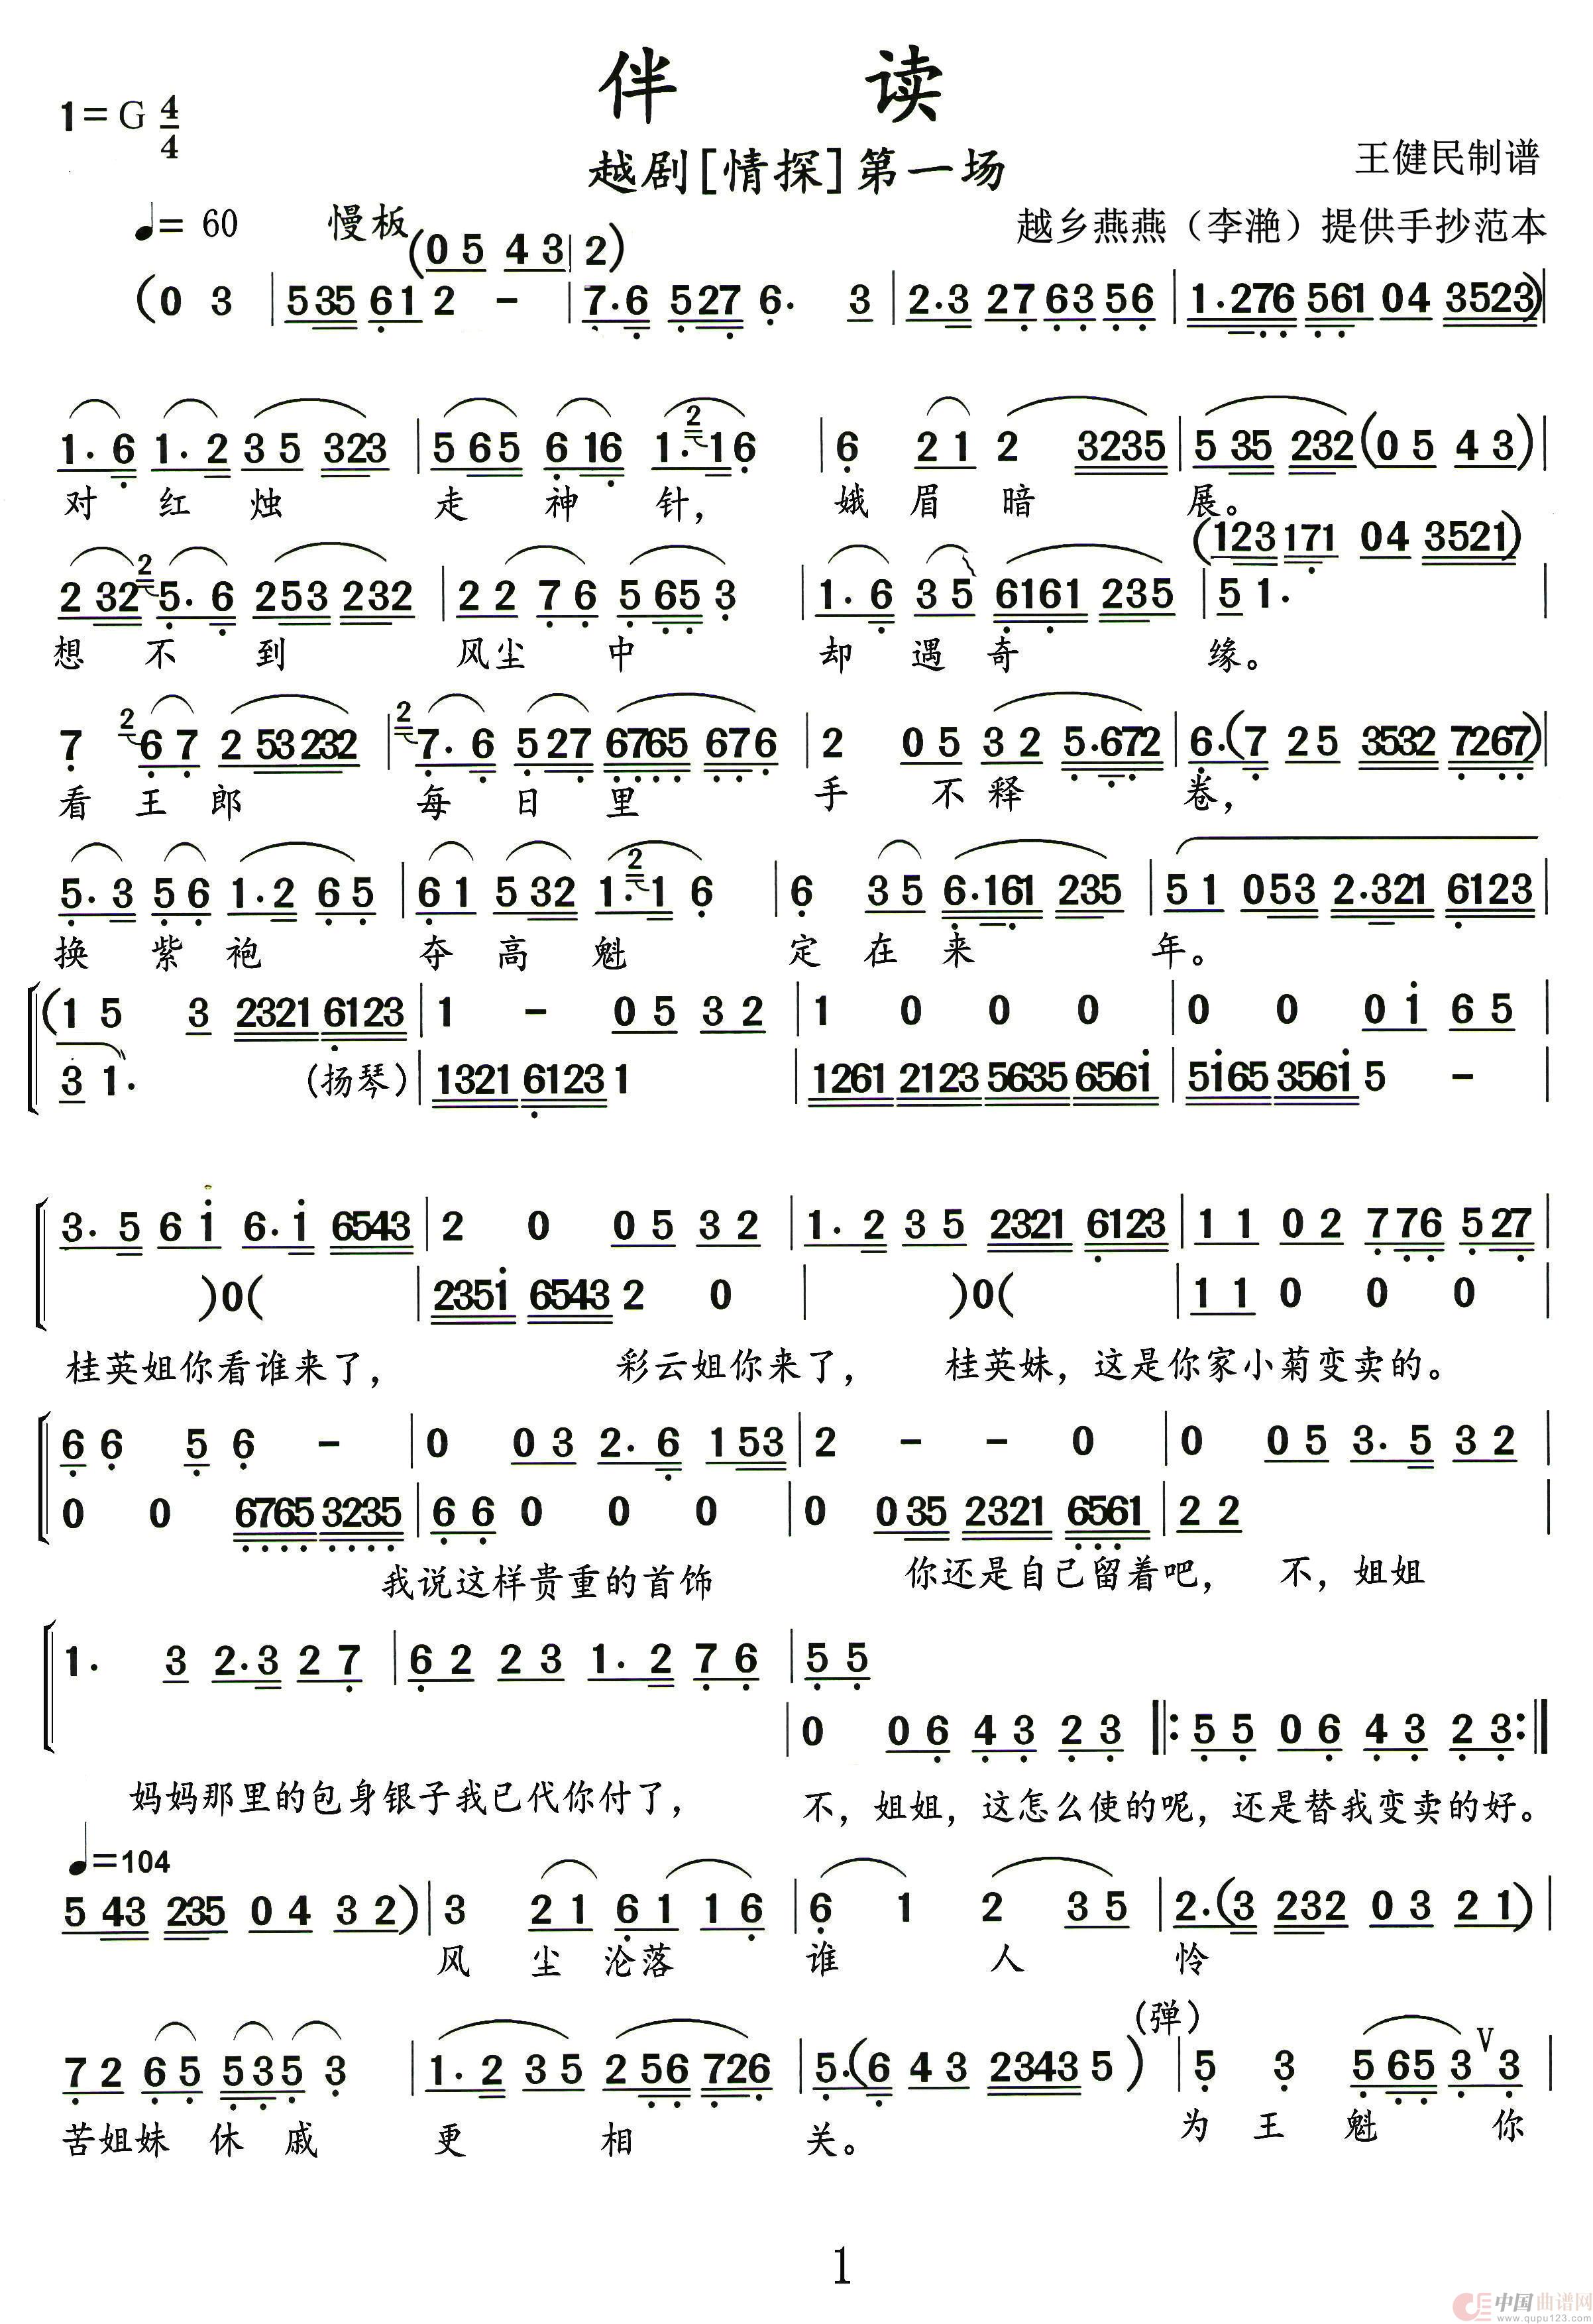 伴 读
1=G 4/4
越剧[情探]第一场
王健民制谱
♩= 60 慢板
越乡燕燕（李滟）提供手抄范本
(0 5 4 3 | 2)
(0 3 | 535 61 2 - | 7.6 527 6. 3 | 2.3 27 63 56 | 1.276 561 04 3523)|
1.6 1.2 35 323 | 565 616 1.216 | 6 21 2 3235 | 535 232(05 43)|
对 红 烛 走 神 针， 娥 眉 暗 展。
(123 171 04 3521)
232 25.6 253 232 | 22 76 565 3 | 1.6 35 6161 235 | 5 1. |
想 不 到 风尘 中 却 遇 奇 缘。
7 267 253232 | 27.6 527 6765 676 | 2 05 32 5.672 | 6.(7 25 3532 7267)|
看 王 郎 每 日 里 手 不 释 卷，
5.3 56 1.2 65 | 61 532 1.21 6 | 6 35 6.161 235 | 51 053 2.321 6123 |
换 紫 袍 夺 高 魁 定 在 来 年。
(1 5 3 2321 6123 | 1 - 05 32 | 1 0 0 0 | 0 0 0i 65 |
3 1. (扬琴)| 1321 6123 1 | 1261 2123 5635 656i | 5i65 356i 5 - |
3.5 6i 6.i 6543 | 2 0 05 32 | 1.2 35 2321 6123 | 11 02 776 527 |
)0( | 235i 6543 2 0 | )0( | 11 0 0 0 |
桂英姐你看谁来了， 彩云姐你来了， 桂英妹，这是你家小菊变卖的。
6 6 5 6 - | 0 03 2.6 153 | 2 - - 0 | 0 05 3.5 32 |
0 0 6765 3235 | 66 0 0 0 | 0 035 2321 6561 | 22 |
我说这样贵重的首饰 你还是自己留着吧， 不，姐姐
1. 3 2.3 27 | 62 23 1.2 76 | 55
| 0 06 43 23 |: 55 06 43 23 :|
妈妈那里的包身银子我已代你付了， 不，姐姐，这怎么使的呢，还是替我变卖的好。
♩=104
543 235 04 32)| 3 21 61 16 | 6 1 2 35 | 2.(3 232 03 21)|
风 尘 沦落 谁 人 怜
(弹)
72 65 535 3 | 1.2 35 256 726 | 5.(6 43 2343 5) | 5 3 565 3 V 3 |
苦姐妹 休 戚 更 相 关。 为 王 魁 你
1
中国曲谱网
www.qupu123.com